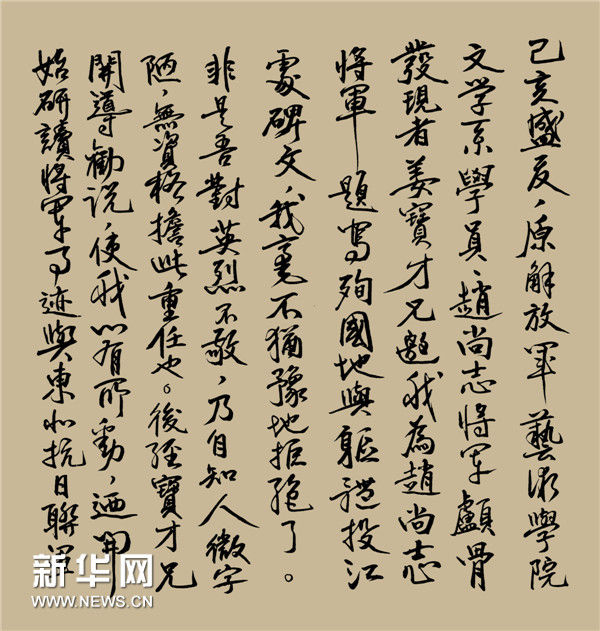 己亥盛夏，原解放军藝術學院
文学系學員、趙尚志將军顱骨
發現者姜寶才兄邀我為趙尚志
將軍題写殉國地與軀體投江
處碑文，我竟不猶豫地拒绝了。
非是吾對英烈不敬，乃自知人微字
陋，無資格擔此重任也。後经寶才兄
開導勸说，使我心有所動，迺開
始研讀將軍事迹與東北抗日聯軍
新华网
WWW.NEWS.CN